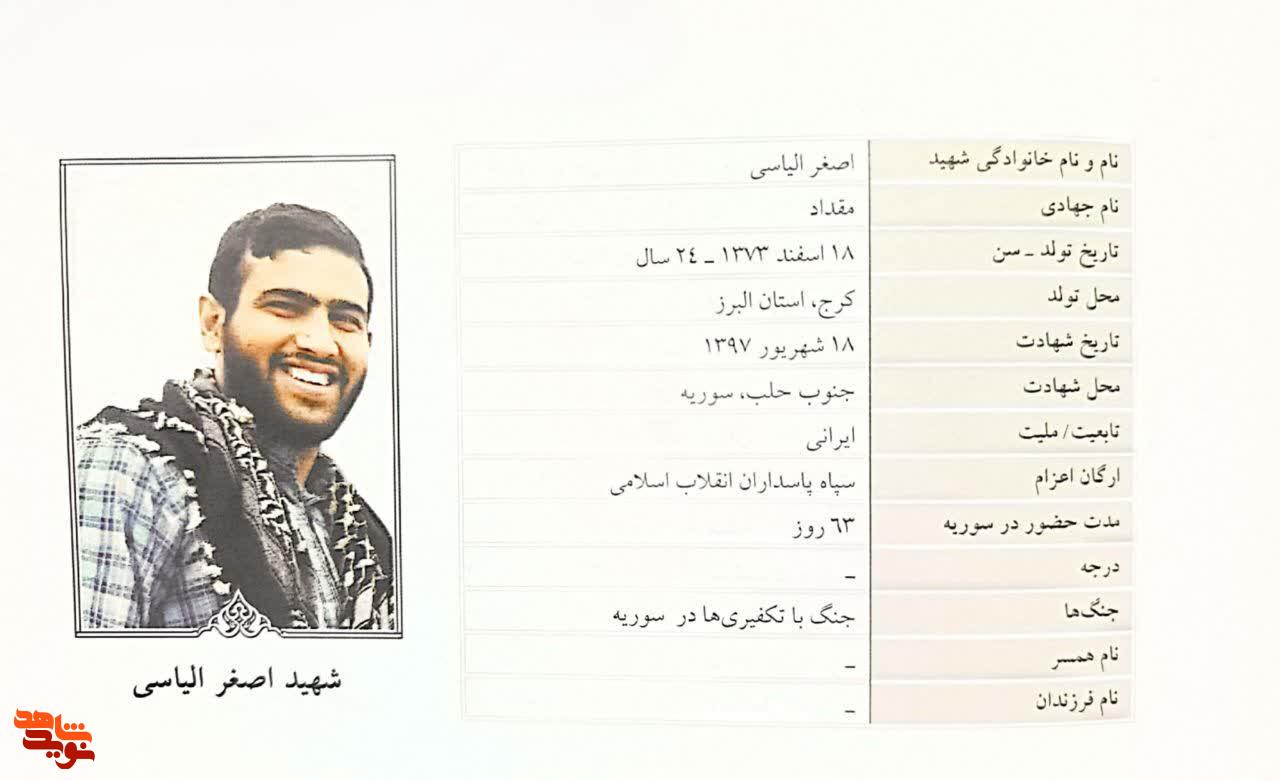 نام و نام خانوادگی شهید اصغر الیاسی
نام جهادی مقداد
تاریخ تولد ـ سن ۱۸ اسفند ۱۳۷۳ ـ ٢٤ سال
محل تولد کرج، استان البرز
تاریخ شهادت ۱۸ شهریور ۱۳۹۷
محل شهادت جنوب حلب، سوریه
تابعیت/ ملیت ایرانی
ارگان اعزام سپاه پاسداران انقلاب اسلامی
مدت حضور در سوریه ٦٣ روز
درجه ـ
جنگ‌ها جنگ با تکفیری‌ها در سوریه
نام همسر ـ
نام فرزندان ـ
شهید اصغر الیاسی
نوید شاهد